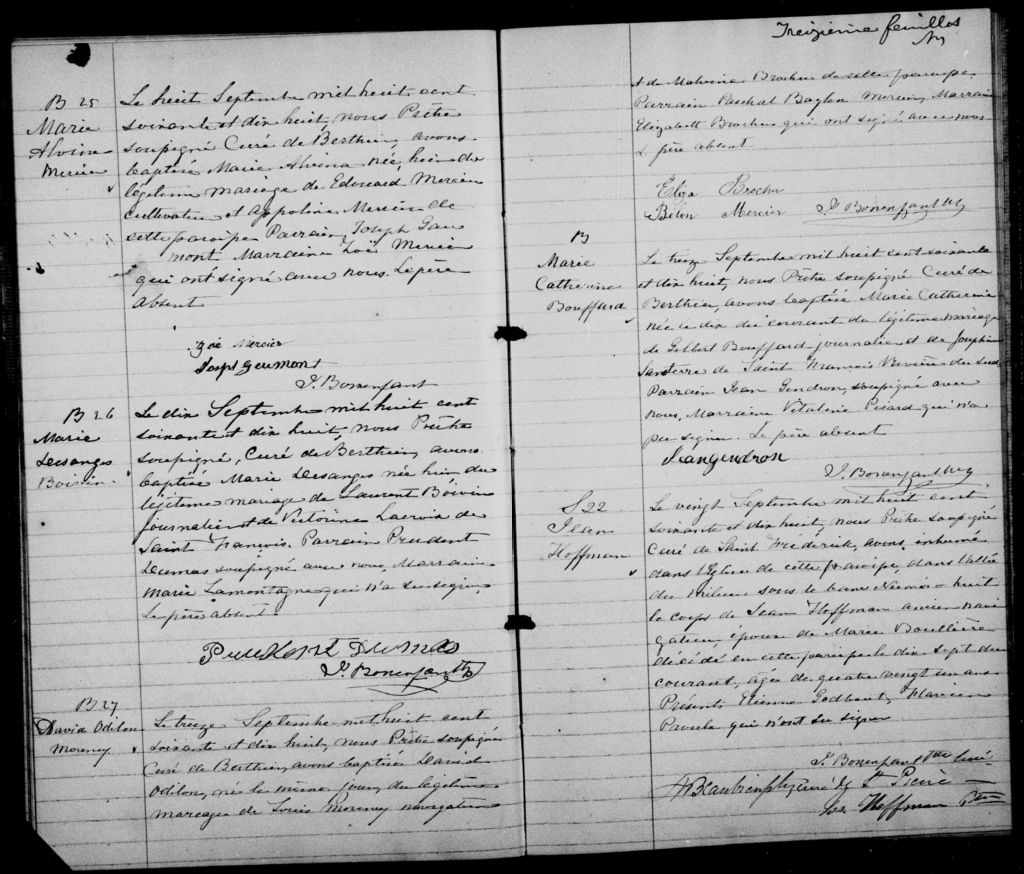 B 25
Marie
Alvina
Mercier
Le huit Septembre mil huit cent
soixante et dix huit, nous Prêtre
soussigné Curé de Berthier, avons
baptisé Marie Alvina née hier du
légitime mariage de Edouard Mercier
cultivateur et Appoline Mercier de
cette paroisse Parrain, Joseph Gau
mont Marraine Zoë Mercier
qui ont signé avec nous. Le père
absent
Zoé Mercier
Joseph Geumont
J. Bonenfant
B 26
Marie
Desanges
Boivin
Le dix Septembre mil huit cent
soixante et dix huit, nous Prêtre
soussigné, Curé de Berthier, avons
baptisé Marie Desanges née hier du
légitime mariage de Laurent Boivin
journalier et de Victorine Lacroix de
Saint François. Parrain Prudent
Dumas soussigné avec nous, Marraine
Marie Lamontagne qui n'a su signer
Le père absent
J. Bonenfant
B 27
David Odilon
Le treize Septembre mil huit cent
soixante et dix huit, nous Prêtre soussigné
Curé de Berthier, avons baptisé David
Odilon, né le même jour, du légitime
mariage de Louis navigateur
Treizième feuillet
et de Malvina Brochu de cette paroisse
Parrain Paschal Baylon Mercier, Marraine
Elizabeth Brochu qui ont signé avec nous
L père absent
Eliza Brochu
Bélon Mercier J. Bonenfant
B
Marie
Catherine
Bouffard
Le treize Septembre mil huit cent soixante
et dix huit, nous Prêtre soussigné Curé de
Berthier, avons baptisé Marie Catherine
née le dix du courant du légitime mariage
de Gilbert Bouffard journalier et de Josephine
de Saint François Rivière du Sud
Parrain Jean Gendron, soussigné avec
nous, Marraine Vitaline Picard qui n'a
pu signer. Le père absent
Jean gendron
J. Bonenfant
S 22
Jean
Hoffman
Le vingt Septembre mil huit cent
soixante et dix huit, nous Prêtre soussigné
Curé de Saint Frédérick, avons inhumé
dans l'Eglise de cette paroisse, dans l'allée
du milieu sous le banc Numéro huit
le corps de Jean Hoffman ancien navi
gateur, époux de Marie
décédé en cette paroisse le dix sept du
courant, agé de quatre vingt un ans
Présents Etienne Godbout, Flavien
qui n'ont su signer
J. Bonenfant Ptre Curé
St Pierre
Jos. Hoffman Ptre